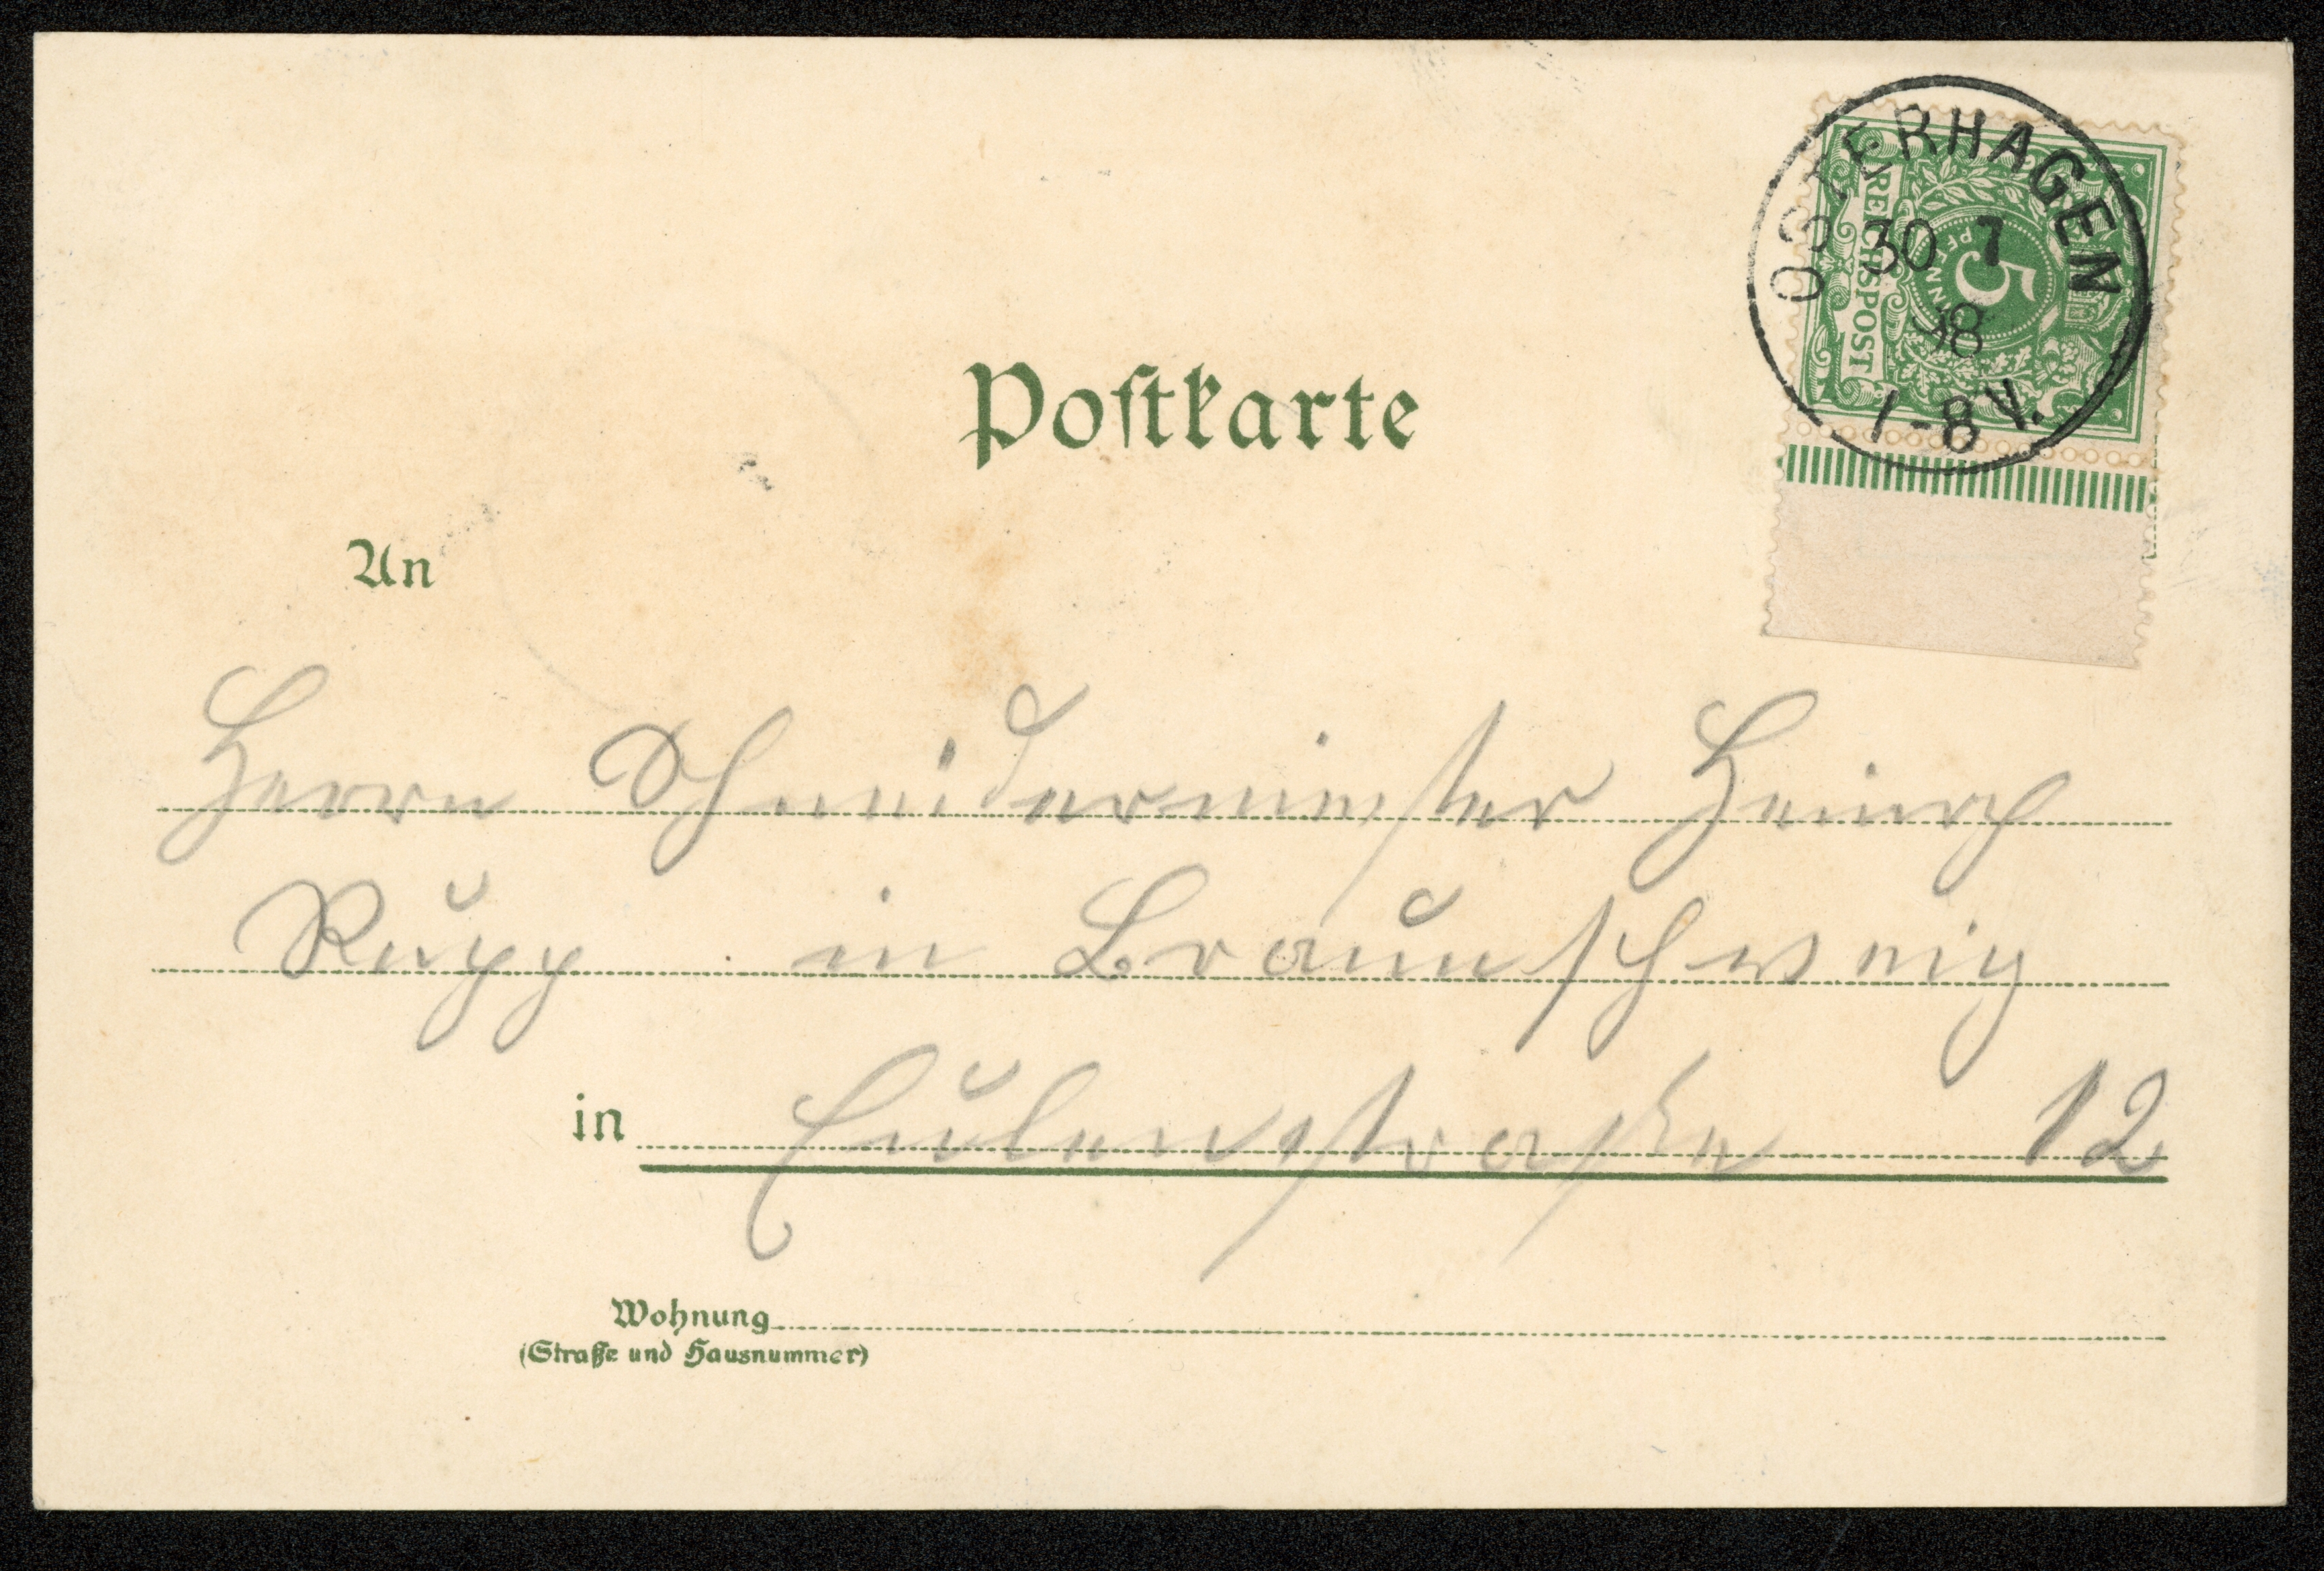 OSTERHAGEN
30 7
98
7-8 V.
REICHSPOST
5
PFENNIG
Postkarte
An
Herrn Schneidermeister Heinrich
Rupp in Braunschweig
in Eulenstraße 12
Wohnung
(Straße und Hausnummer)